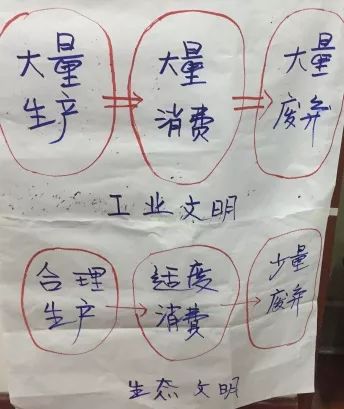 大量 大量 大量
生产 消费 废弃
工业文明
合理 适度 少量
生产 消费 废弃
生态文明